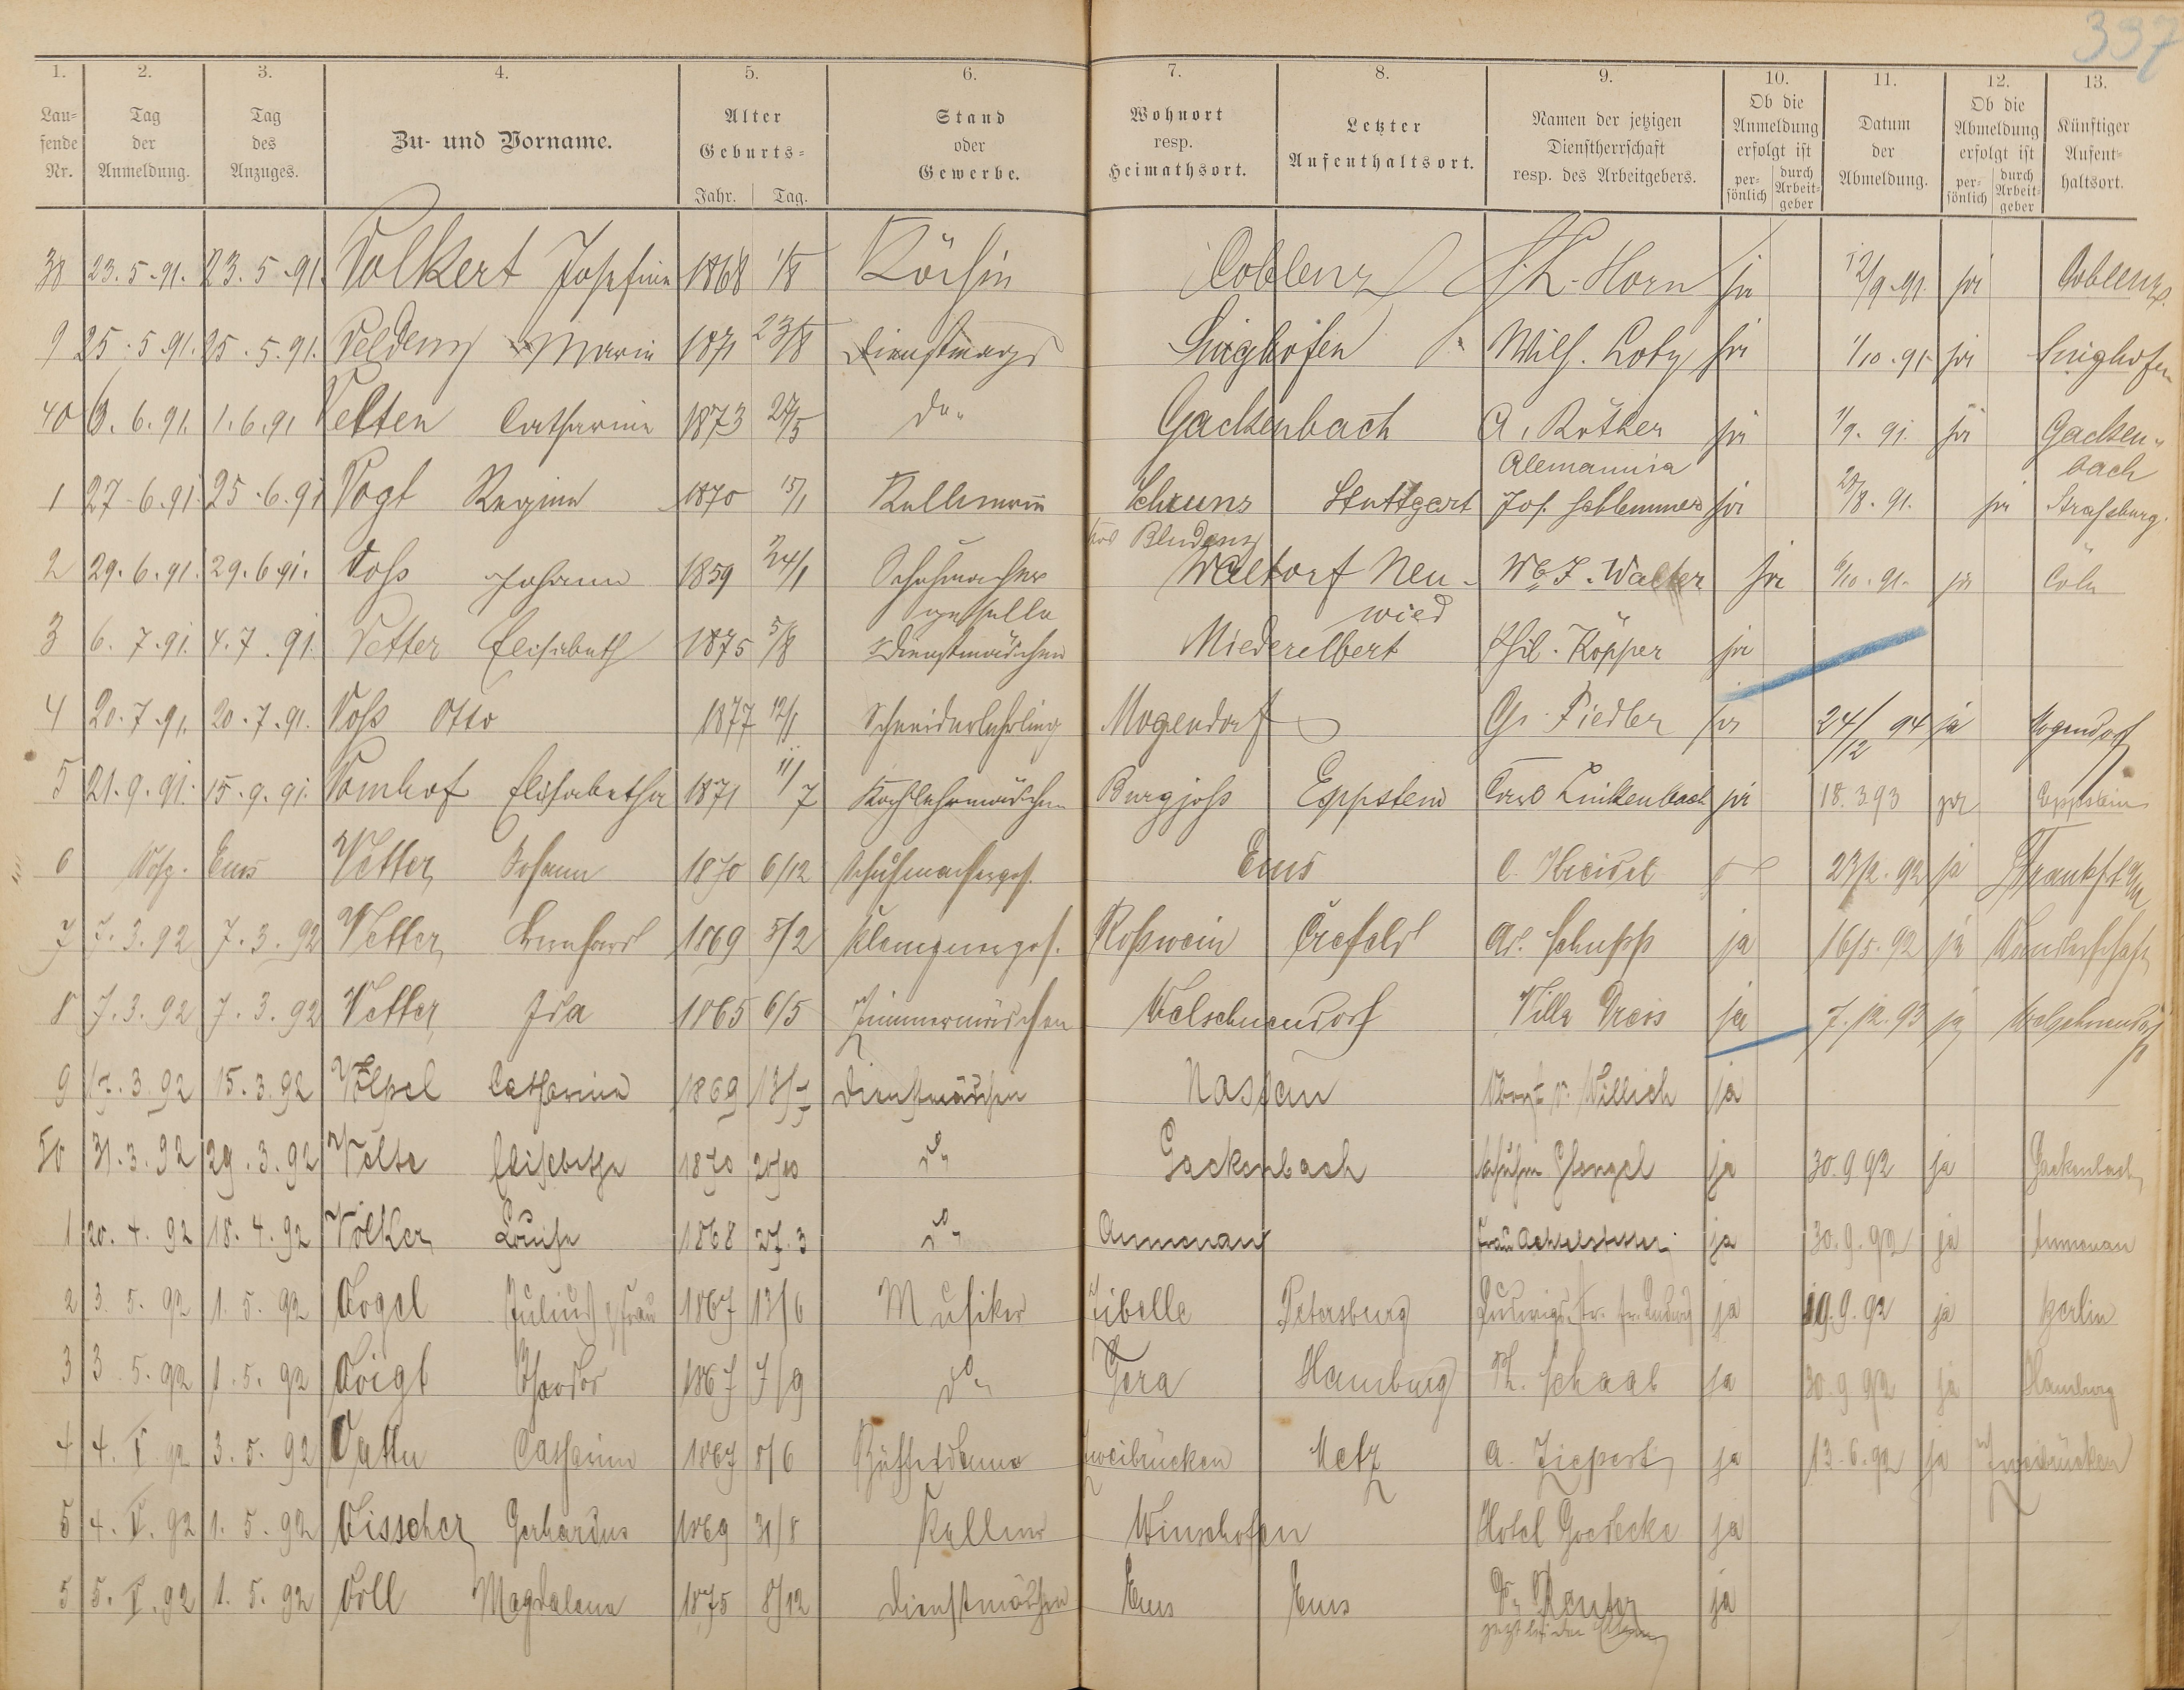 337
1. 2. 3. 4. 5. 6. 7. 8. 9. 10. 11. 12. 13.
Lau=
fende
Nr.
Tag
der
Anmeldung.
Tag
des
Anzuges.
Zu- und Vorname.
Alter
Geburts=
Jahr. Tag.
Stand
oder
Gewerbe.
Wohnort
resp.
Heimathsort.
Letzter
Aufenthaltsort.
Namen der jetzigen
Dienstherrschaft
resp. des Arbeitgebers.
Ob die
Anmeldung
erfolgt ist
per=
sönlich
durch
Arbeit=
geber
Datum
der
Abmeldung.
Ob die
Abmeldung
erfolgt ist
per=
sönlich
durch
Arbeit=
geber
Künftiger
Aufent=
haltsort.
38 23.5.91. 23.5.91. Volkert Josefine 1868 1/8 Köchin Coblenz Horn ja 12/9.91. ja Coblenz.
9 25.5.91. 25.5.91. Veldenz Marie 1871 23/8 Dienstmagd Singhofen Wilh. Loty ja 1/10.91. ja Singhofen
40 3.6.91. 1.6.91 Velten Catharine 1873 27/5 do. Gackenbach A. Röther ja 1/9.91. ja Gacken-
bach
1 27.6.91. 25.6.91 Vogt Regina 1870 15/1 Kellnerin Schruns Stuttgart Alemannia
Jos. Schlemmer ja 20/8.91. ja Strassburg.
Bludenz
2 29.6.91. 29.6.91. Voss Johann 1859 24/1 Schuhmacher
geselle Waldorf Neu-
wied W. F. Walter ja 6/10.91. ja Cöln
3 6.7.91. 4.7.91. Vetter Elisabeth 1875 5/8 Dienstmädchen Niederelbert Phil. Köpper ja
4 20.7.91. 20.7.91. Voss Otto 1877 12/1 Schneiderlehrling Mogendorf G. Fiedler ja 24/12 94 ja Mogendorf
5 21.9.91. 15.9.91. Vomhof Elisabetha 1871 11/7 Kochlehrmädchen Burgjoss Eppstein Linkenbach ja 18.3.93 ja Eppstein
6 Ems Vetter Johann 1870 6/12 Schuhmacherges. Ems C. Heisel 23/2.92 ja Frankft a/M
7 7.3.92 7.3.92 Vetter Bernhard 1869 5/2 Klempnerges. Rosswein Crefeld Ad. Schupp ja 16/5.92 ja Wanderschaft
8 7.3.92 7.3.92 Vetter Ida 1865 6/5 Zimmermädchen Welschneudorf Villa Dreis ja 7.12.93 ja Welschneudorf
9 17.3.92 15.3.92 Völpel Catharina 1869 Dienstmädchen Nassau v. Willich ja
50 31.3.92 29.3.92 Velte Elisabetha 1870 25/10 do Gackenbach ja 30.9.92 ja Gackenbach
1 20.4.92 18.4.92 Völker Louise 1868 27.3 do Aumenau Frau ja 30.9.92 ja Aumenau
2 3.5.92 1.5.92 Vogel Julius & Frau 1867 13/6 Musiker Zibelle Petersburg ja 19.9.92 ja Berlin
3 3.5.92 1.5.92 Voigt Theodor 1867 7/9 do Gera Hamburg Th. Schaab ja 30.9.92 ja Hamburg
4 4.V.92 3.5.92 Catharina 1867 8/6 Büffetdame Zweibrücken Metz A. Ziepert ja 13.6.92 ja Zweibrücken
5 4.V.92 1.5.92 Visscher Gerhardus 1869 31/8 Kellner Winschoten Hotel Goedecke ja
5 5.V.92 1.5.92 Voll Magdalena 1875 8/12 Dienstmädchen Ems Ems Dr. Reuter ja
jetzt bei den Eltern